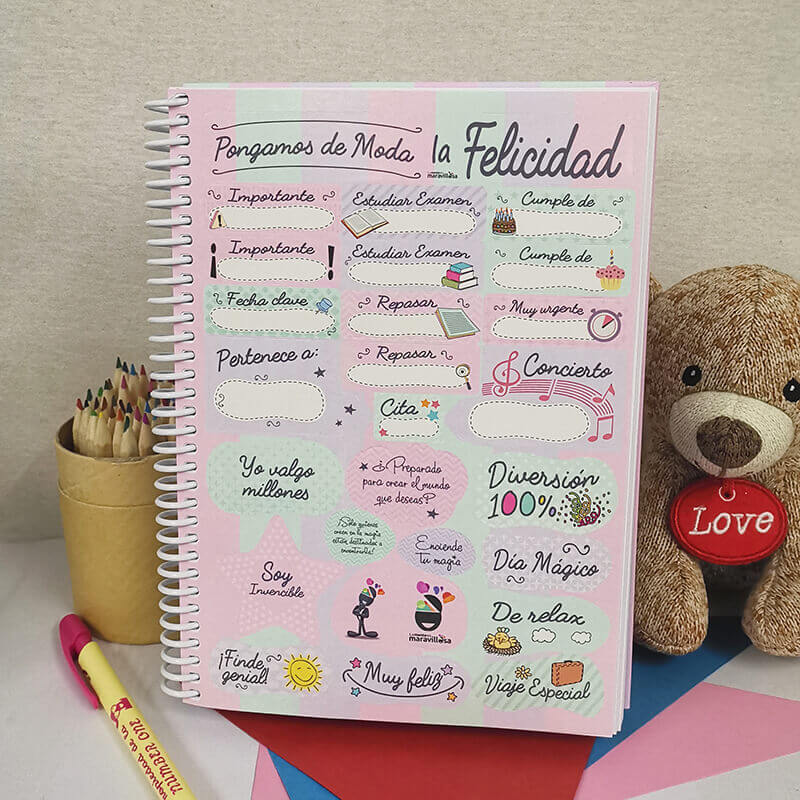 Pongamos de Moda la Felicidad
maravillosa
Importante
Estudiar Examen
Cumple de
Importante !
Estudiar Examen
Cumple de
Fecha clave
Repasar
Muy urgente
Pertenece a:
Repasar
Concierto
Cita
Yo valgo
millones
¿Preparado
para crear el mundo
que deseas?
Diversión
100%
¡Sólo quienes
creen en la magia
están destinados a
encontrarla!
Enciende
Tu magia
Día Mágico
Soy
Invencible
maravillosa
De relax
¡Finde
genial!
Muy feliz
Viaje Especial
Love
NUMBER ONE